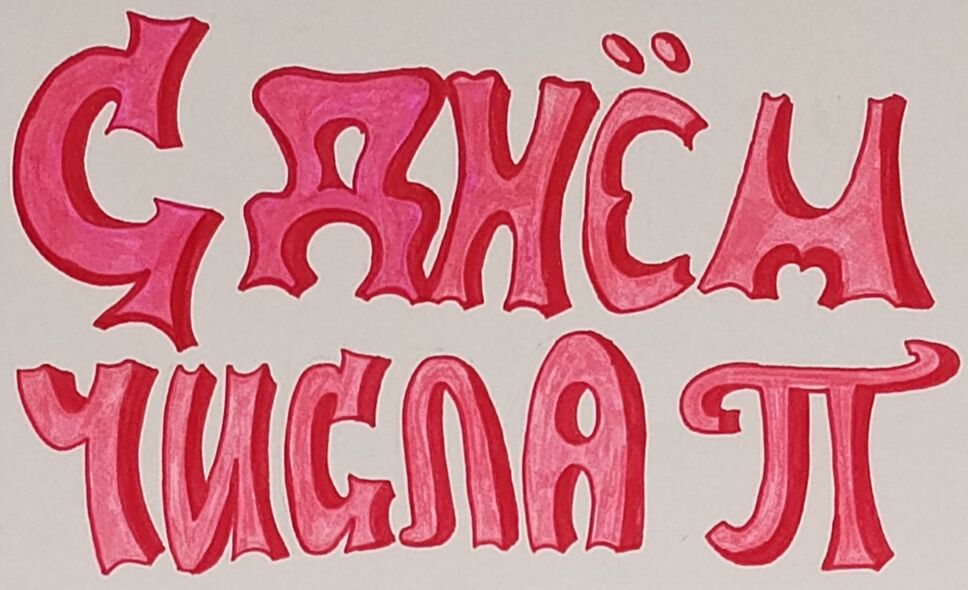 С ДНЁМ
ЧИСЛА π